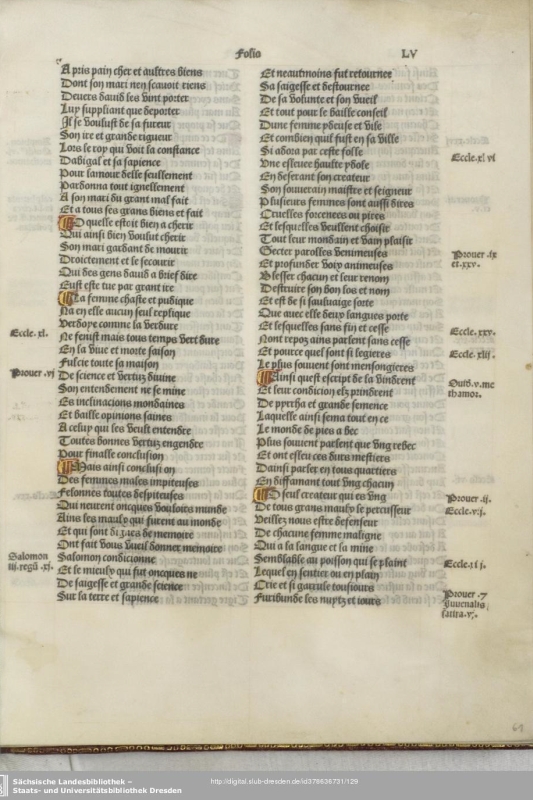 Folio LV
A pris pain cher et aultres biens
Dont son mari nen scauoit riens
Deuers dauid les vint porter
Luy suppliant que deporter
Il se voulust de sa fureur
Son ire et grande rigueur
Lors le roy qui voit la constance
Dabigal et sa sapience
Pour lamour delle seullement
Pardonna tout ignellement
A son mari du grant mal fait
Et a tous ses grans biens et fait
O quelle estoit bien a cherir
Qui ainsi bien voulut cherir
Son mari gardant de mourir
Droictement et le secourir
Qui des gens dauid a brief dire
Eust este tue par grant ire
La femme chaste et pudique
Na en elle aucun seul replique
Verdoye comme la verdure
Eccle. xl.
Ne fenist mais tous temps vert dure
En la viue et morte saison
Fulcie toute sa maison
Prouer. vj
De science et vertuz diuine
Son entendement ne se mine
Es inclinacions mondaines
Et baille opinions saines
A celuy qui les veult entendre
Toutes bonnes vertuz engendre
Pour finalle conclusion
Mais ainsi conclusion
Des femmes males impiteuses
Felonnes toutes despiteuses
Qui neurent oncques vouloirs munde
Ains les maulx qui furent au monde
Et qui sont dignes de memoire
Ont fait vous vueil donner memoire
Salomon
iii. regū. xj.
Salomon condicionne
Et le mieulx qui fut oncques ne
De saigesse et grande science
Sur la terre et sapience
Et neautmoins fut retournee
Sa saigesse et destournee
De sa volunte et son vueil
Et tout pour le baille conseil
Dune femme pdeuse et vile
Et combien quil fust en sa ville
Si adora par ceste folle
Eccle. xl vl
Vne esleuee haulte ydole
En deserant son createur
Son souuerain maistre et seigneur
Plusieurs femmes sont aussi dires
Cruelles forcenees ou pires
Et lesquelles veullent choisir
Tout leur mondain et vain plaisir
Getter parolles venimeuses
Prouer. ix
et. xxv.
Et profunder voix animeuses
Blesser chacun et leur renom
Destruire son bon los et nom
Et est de si sauluaige sorte
Que auec elle deux langues porte
Et lesquelles sans fin et cesse
Eccle. xxv.
Nont repoz ains parlent sans cesse
Et pource quel sont si legieres
Eccle. xlij.
Le plus souuent sont mensongieres
Ainsi quest escript de la vindrent
Ouid. v. me
thamor.
Et leur condicion elz prindrent
De pyrrha et grande semence
Laquelle ainsi sema tout en ce
Le monde de pies a bec
Plus souuent parlent que vng rebec
Et ont esleu ces durs mestiers
Dainsi parler en tous quartiers
En diffamant tout vng chacun
O seul createur qui es vng
Prouer. ij.
De tous grans maulx le percusseur
Eccle. v:j.
Veillez nous estre defenseur
De chacune femme maligne
Qui a la langue et la mine
Semblable au poisson qui se plaint
Lequel en sentier ou en plain
Crie et si garrule tousiours
Prouer. 7
Iuuenalis
satira. v.
Furibunde les nuytz et iours
61
Sächsische Landesbibliothek –
Staats- und Universitätsbibliothek Dresden
http://digital.slub-dresden.de/id378636731/129